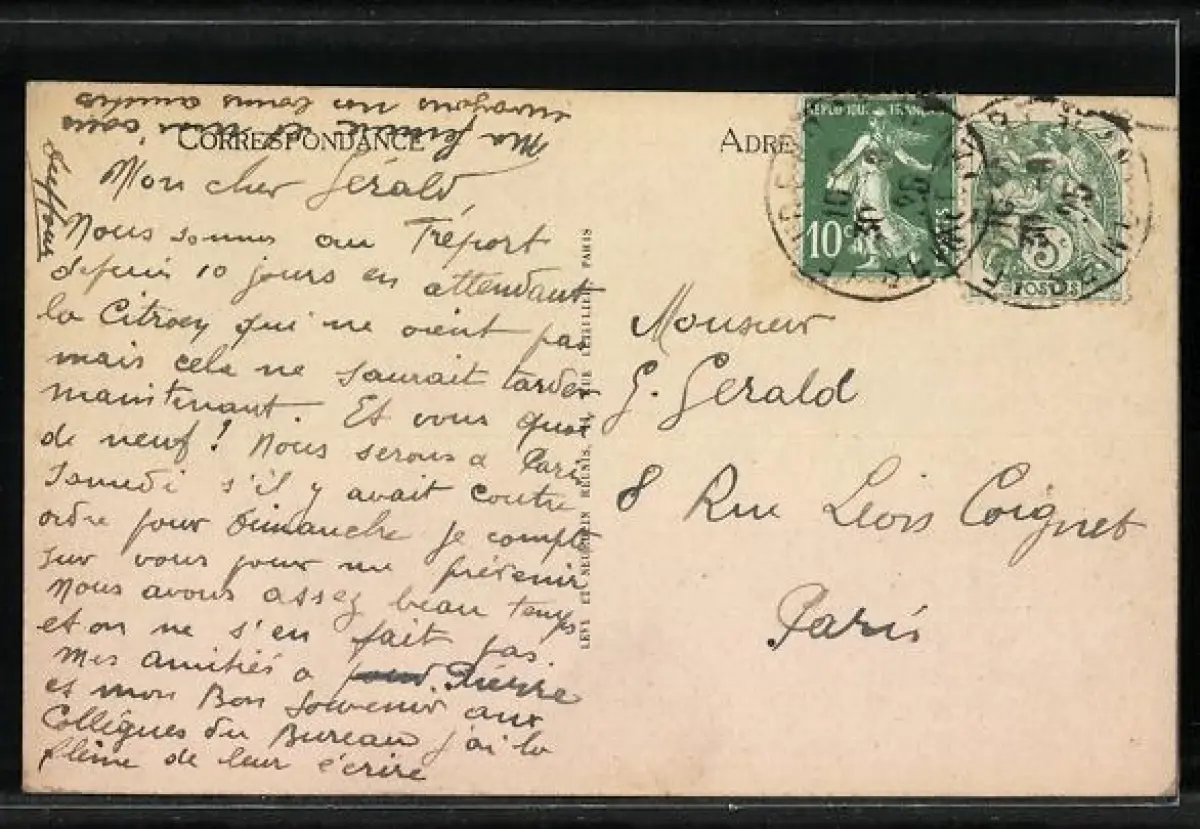 CORRESPONDANCE
ADRE
Mon cher Gérald
Nous sommes au Tréport
depuis 10 jours en attendant
la Citroey qui ne vient pas
mais cela ne saurait tarder
maintenant. Et vous quoi
de neuf! Nous serons a Paris
Samedi s'il y avait contre
ordre pour Dimanche je compte
sur vous pour me prévenir
Nous avons assez beau temps
et on ne s'en fait pas.
Mes amitiés a Pierre
et mon Bon Souvenir aux
Collègues du Bureau j'ai la
flème de leur écrire
Ma femme et moi vous
envoyons nos bonnes amitiés
LEVY ET NEURDEIN REUNIS, 44, RUE LETELLIER PARIS
REPUBLIQUE FRANÇAISE
10c
POSTES
5c
POSTES
Monsieur
G. Gerald
8 Rue Léon Coignet
Paris